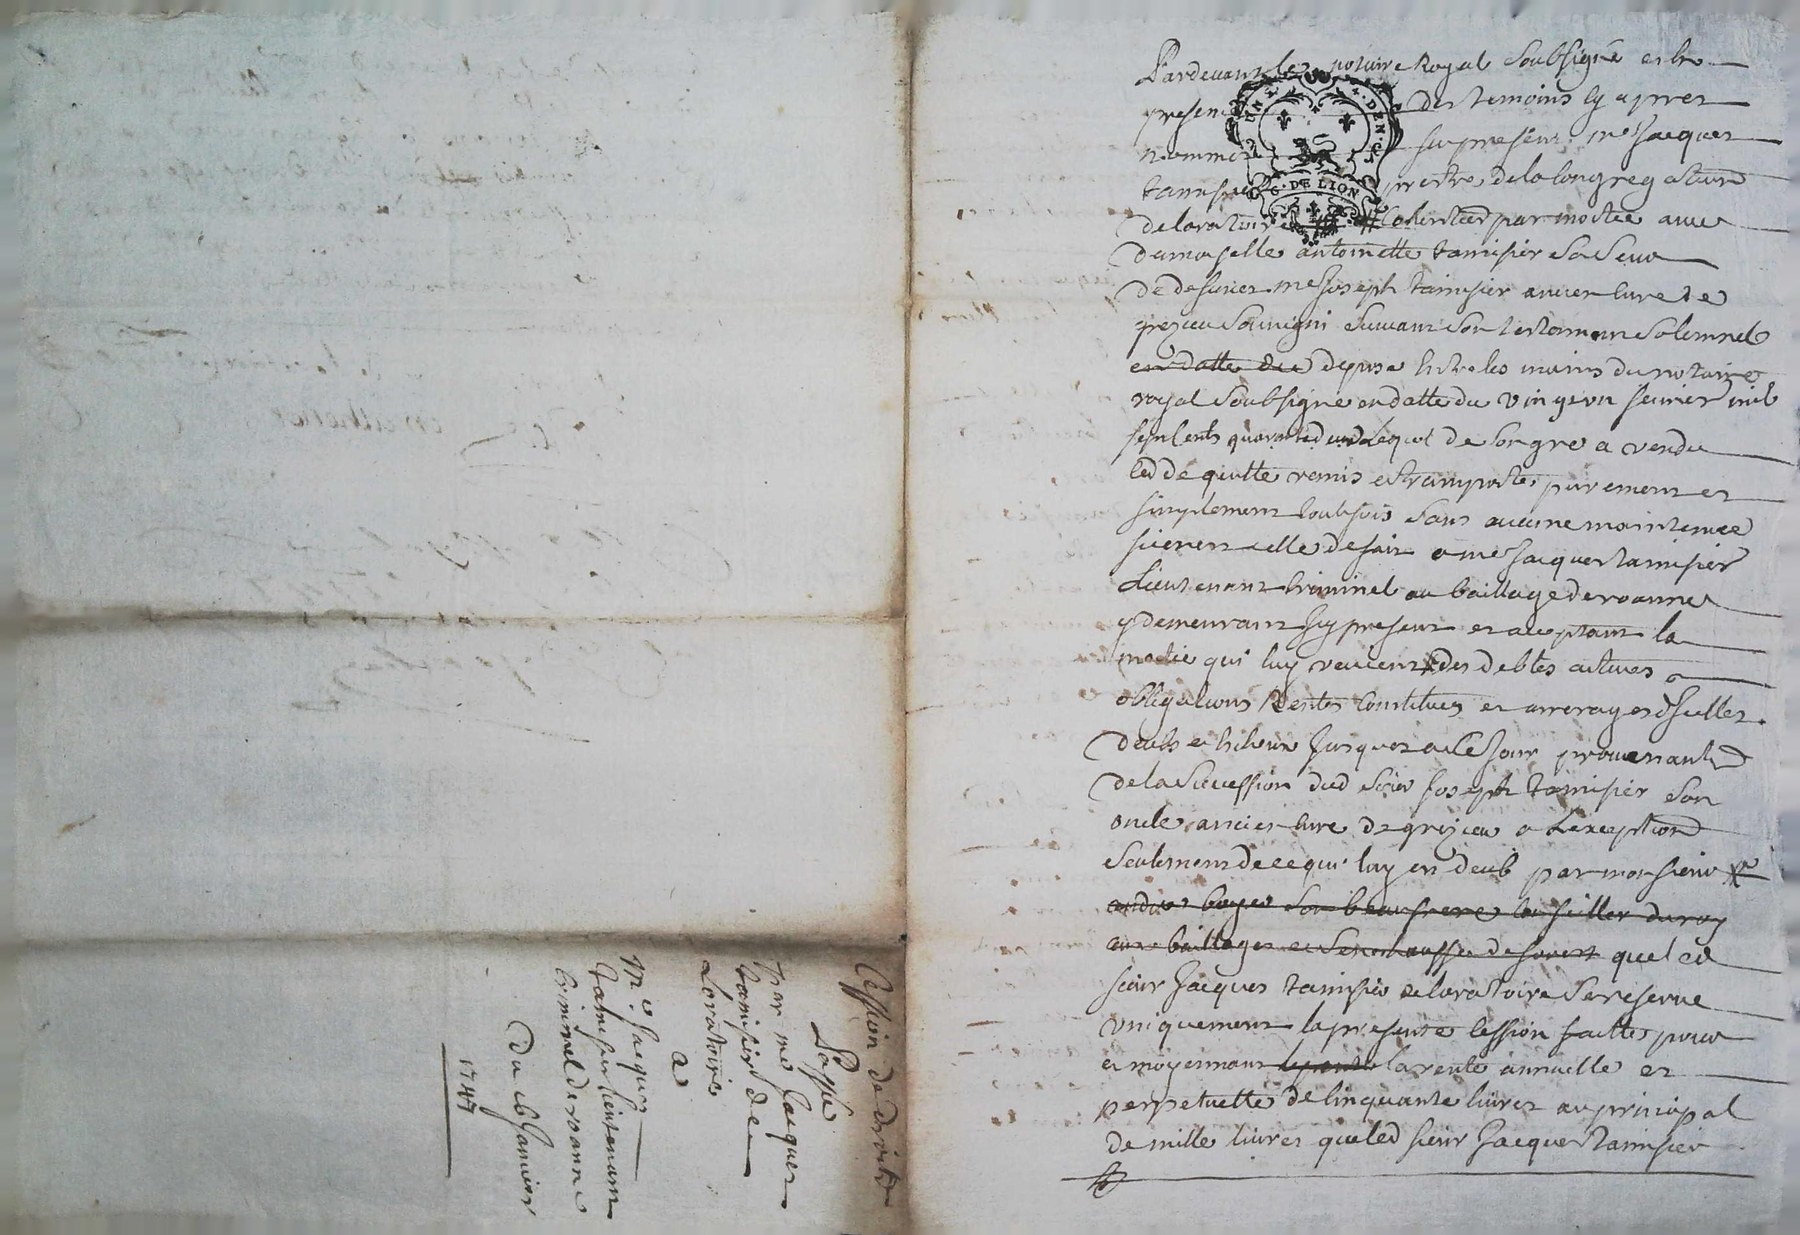 Pardevant le notaire Royal soubsigné et en
presence des temoins cy apres
nommés fut present mre Jacques
tamisier prestre de la Congregation
de loratoire # coheritier par moitié avec
damoiselle antoinette tamisier sa seur
de deffunct mre Joseph tamisier ancien curé de
grezieu souvigni suivant son testament solemnel
en datte du deposé entre les mains du notaire
royal soubsigné en datte du vingt un feuvrier mil
sept cents quarante deux Lequel de son gré a vendu
cedé quitté remis et transporté purement et
simplement toutefois sans aucune maintenue
si ce n'est celle de fait a mre Jacques tamisier
Lieutenant Criminel au baillage de roanne
y demeurant icy present et acceptant la
moitié qui luy revient des debtes actives
obligations Rentes constitues et arrerages d'icelles
deubs et echeus jusques a ce jour provenants
de la succession dud sieur Joseph tamisier son
oncle ancien curé de grezieu a Lexception
seulement de ce qui luy est deub par monsieur #
son beaufrere conseiller du roy
aux baillage et senechaussée de forest que led
sieur Jacques tamisier de loratoire se reserve
uniquement la presente cession faitte pour
et moyennant la rente annuelle et
perpetuelle de cinquante livres au principal
de mille livres que led sieur Jacques tamisier
Cession de droits
Passée
par mre Jacques
tamisier de
Loratoire
a
Mre Jacques
tamisier lieutenant
criminel de roanne
Du 26 Janvier
1747
G. DE LION